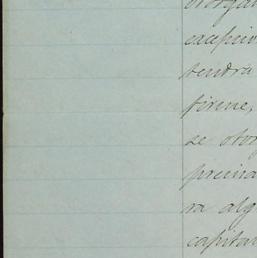 otorga
escepciv
tendrá
firme,
se otor
precisa
ra alg
capital